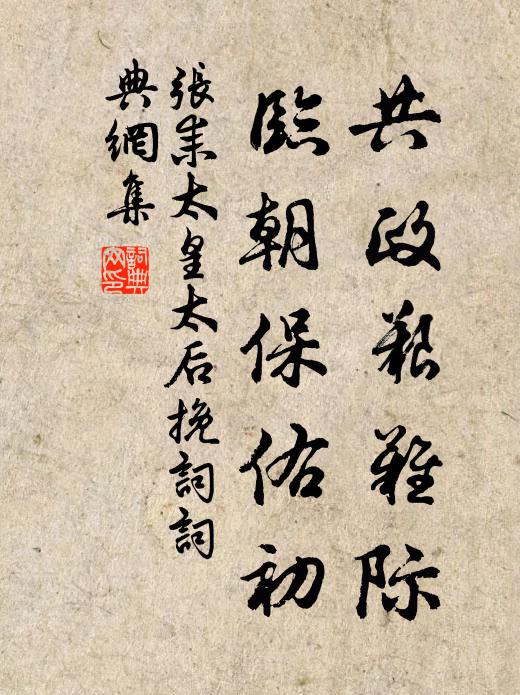 共政艱難際
臨朝保佑初
張耒太皇太后挽詞詞
典網集
詞典